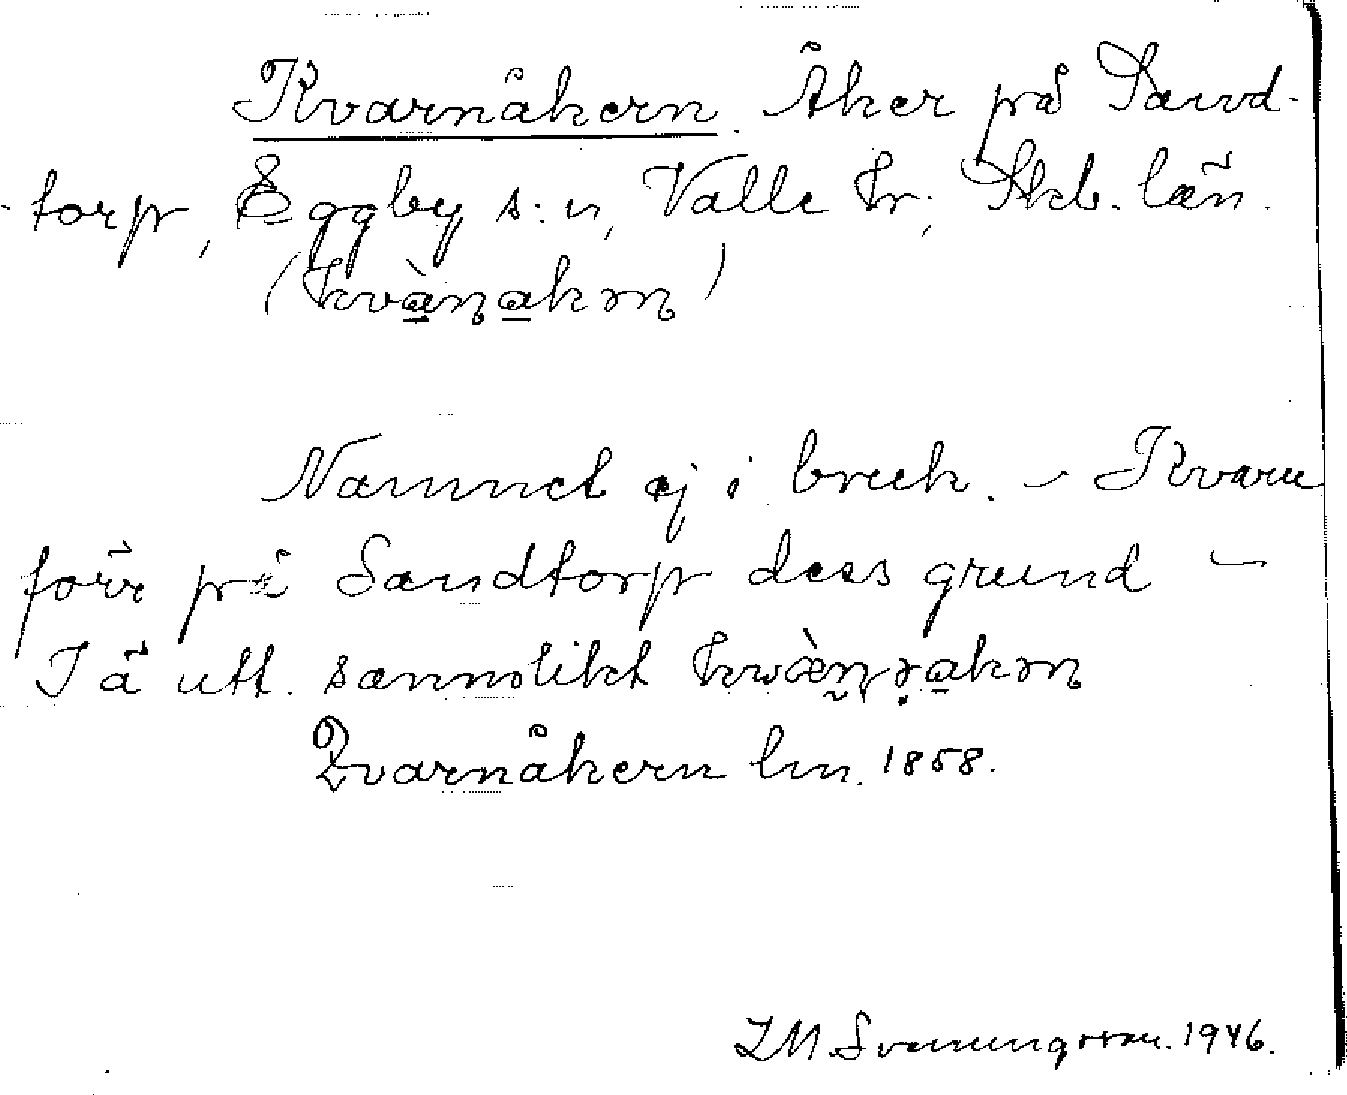 Kvarnåkern. Åker på Sand-
-torp, Eggby s:n, Valle hr; Skb. län.
Namnet ej i bruk. – Kvarn
förr på Sandtorp dess grund –
I ä utt. sannolikt
Qvarnåkern lm. 1858.
I M. Svenungsson. 1946.